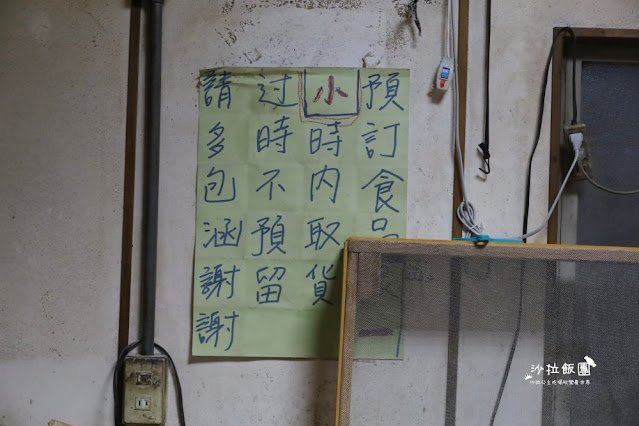 預訂食品
小時內取貨
过時不預留
請多包涵謝謝
沙拉飯團